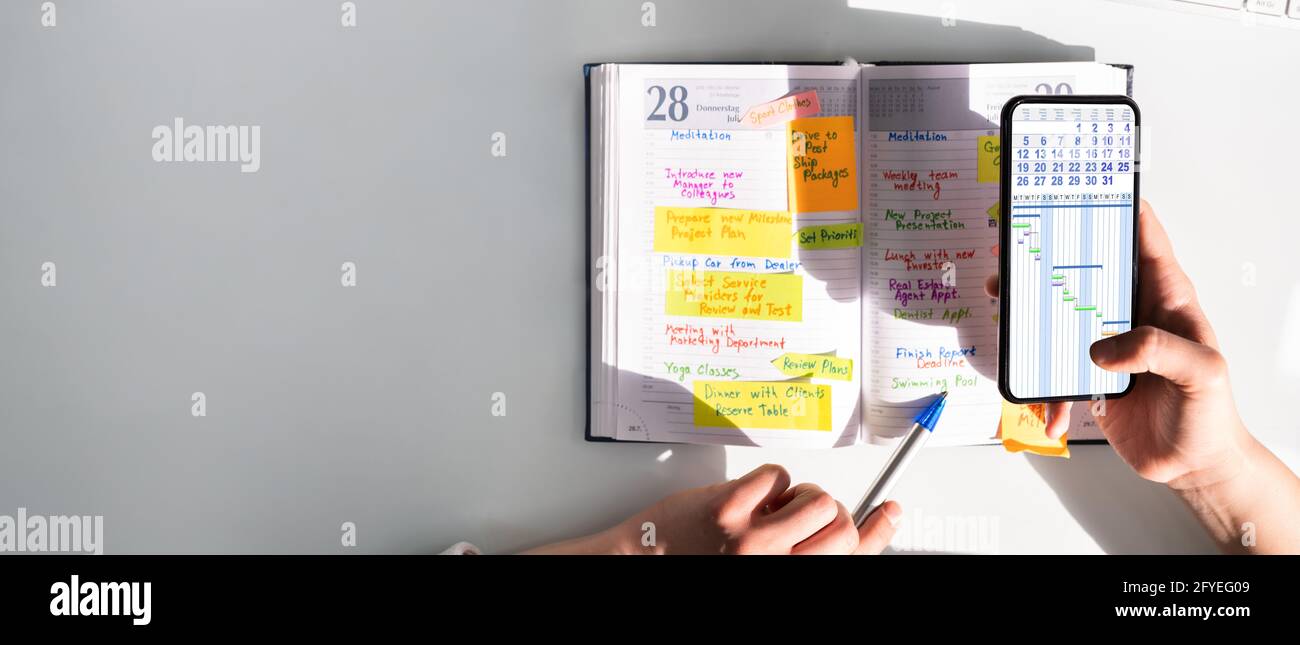 28
Donnerstag
Juli
Sport Clothes
Meditation
Drive to
Post
Ship
Packages
Introduce new
Manager to
Colleagues
Prepare new Milestone
Project Plan
Set Prioriti
Pickup Car from Dealer
Select Service
Providers for
Review and Test
Meeting with
Marketing Department
Yoga Classes
Review Plans
Dinner with Clients
Reserve Table
28.7.
Meditation
Weekly team
meeting
New Project
Presentation
Lunch with new
Investor
Real Estate
Agent Appt.
Dentist Appt.
Finish Report
Deadline
Swimming Pool
Mil
1 2 3 4
5 6 7 8 9 10 11
12 13 14 15 16 17 18
19 20 21 22 23 24 25
26 27 28 29 30 31
M T W T F S S M T W T F S S
Alt Gr
alamy
alamy
Image ID: 2FYEG09
www.alamy.com